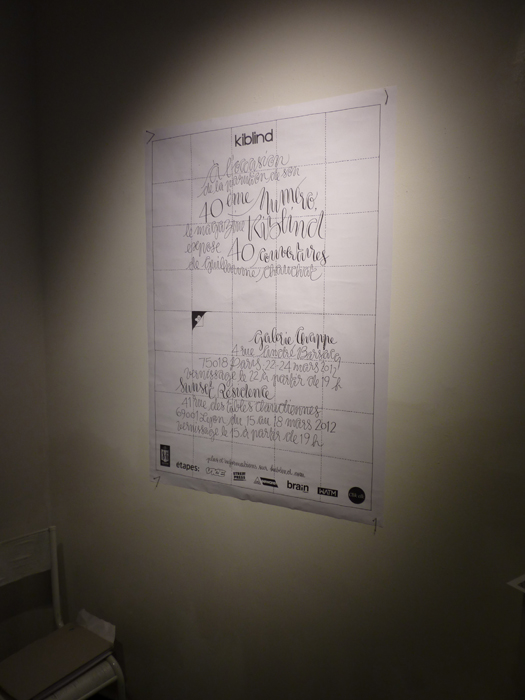 kiblind
A l'occasion
de la parution de son
40ème Numéro,
le magazine Kiblind
expose 40 couvertures
de Guillaume Chauchat
Galerie Grappe
4 rue
75018 Paris 22-24 mars 2012
Vernissage le 22 à partir de 19h
Sunset Résidence
41 rue des tables claudiennes
69001 Lyon du 15 au 18 mars 2012
Vernissage le 15 à partir de 19h
plus d'informations sur kiblind.com
étapes:
brain